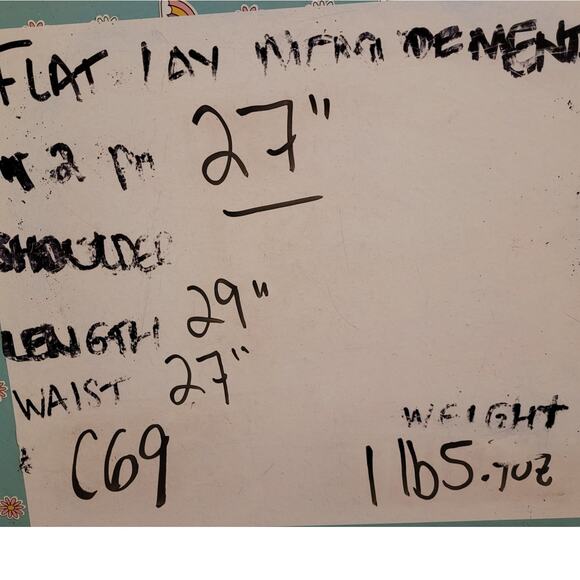 FLAT LAY
27"
SHOULDER
LENGTH 29"
WAIST 27"
C69
WEIGHT
1 lb 5.7oz